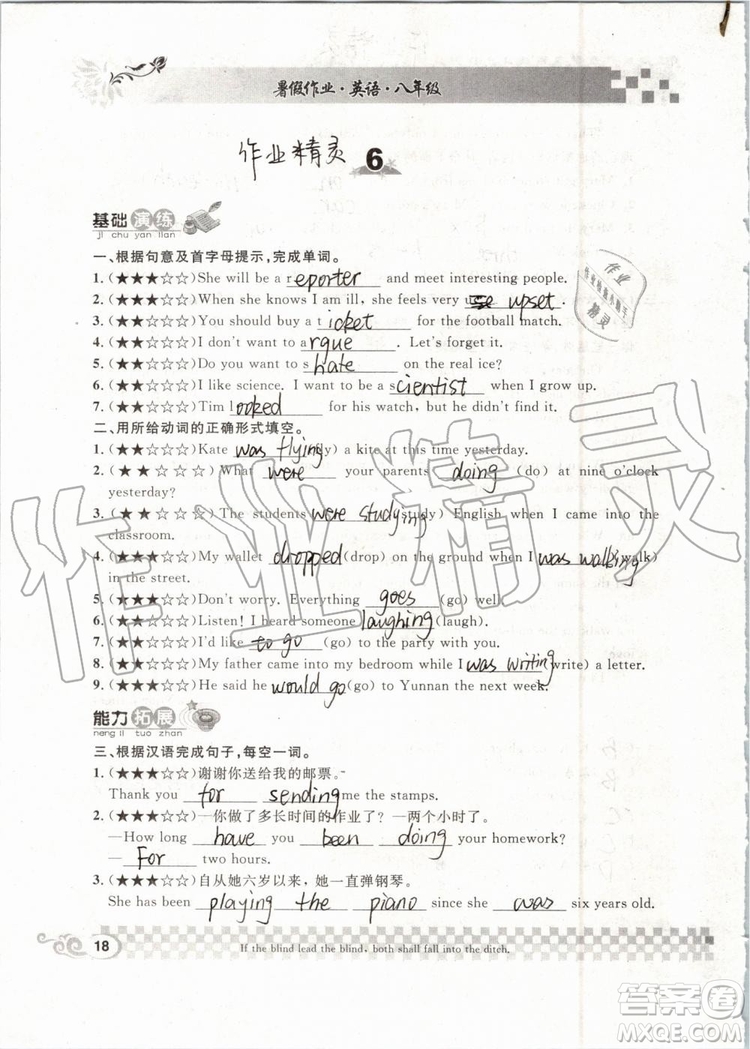 暑假作业·英语·八年级
作业精灵 6
基础演练
jī chu yan lian
一、根据句意及首字母提示,完成单词。
1. (★★★☆☆)She will be a reporter and meet interesting people.
2. (★★★☆☆)When she knows I am ill, she feels very upset.
3. (★★★☆☆)You should buy a ticket for the football match.
4. (★★★☆☆)I don't want to argue. Let's forget it.
5. (★★★☆☆)Do you want to shate on the real ice?
6. (★★★☆☆)I like science. I want to be a scientist when I grow up.
7. (★★★☆☆)Tim looked for his watch, but he didn't find it.
二、用所给动词的正确形式填空。
1. (★★☆☆☆)Kate was flying(fly) a kite at this time yesterday.
2. (★★☆☆☆)What were your parents doing (do) at nine o'clock
yesterday?
3. (★★☆☆☆)The students were studying English when I came into the
classroom.
4. (★★☆☆☆)My wallet dropped(drop) on the ground when I was walking(walk)
in the street.
5. (★★★☆☆)Don't worry. Everything goes (go) well.
6. (★★★☆☆)Listen! I heard someone laughing(laugh).
7. (★★★☆☆)I'd like to go (go) to the party with you.
8. (★★★☆☆)My father came into my bedroom while I was writing(write) a letter.
9. (★★★☆☆)He said he would go(go) to Yunnan the next week.
能力拓展
neng li tuo zhan
三、根据汉语完成句子,每空一词。
1. (★★★☆☆)谢谢你送给我的邮票。
Thank you for sending me the stamps.
2. (★★★☆☆)—你做了多长时间的作业了?—两个小时了。
—How long have you been doing your homework?
—For two hours.
3. (★★★☆☆)自从她六岁以来,她一直弹钢琴。
She has been playing the piano since she was six years old.
18
If the blind lead the blind, both shall fall into the ditch.
作业精灵
作业
精灵
答案圈
MXQE.COM